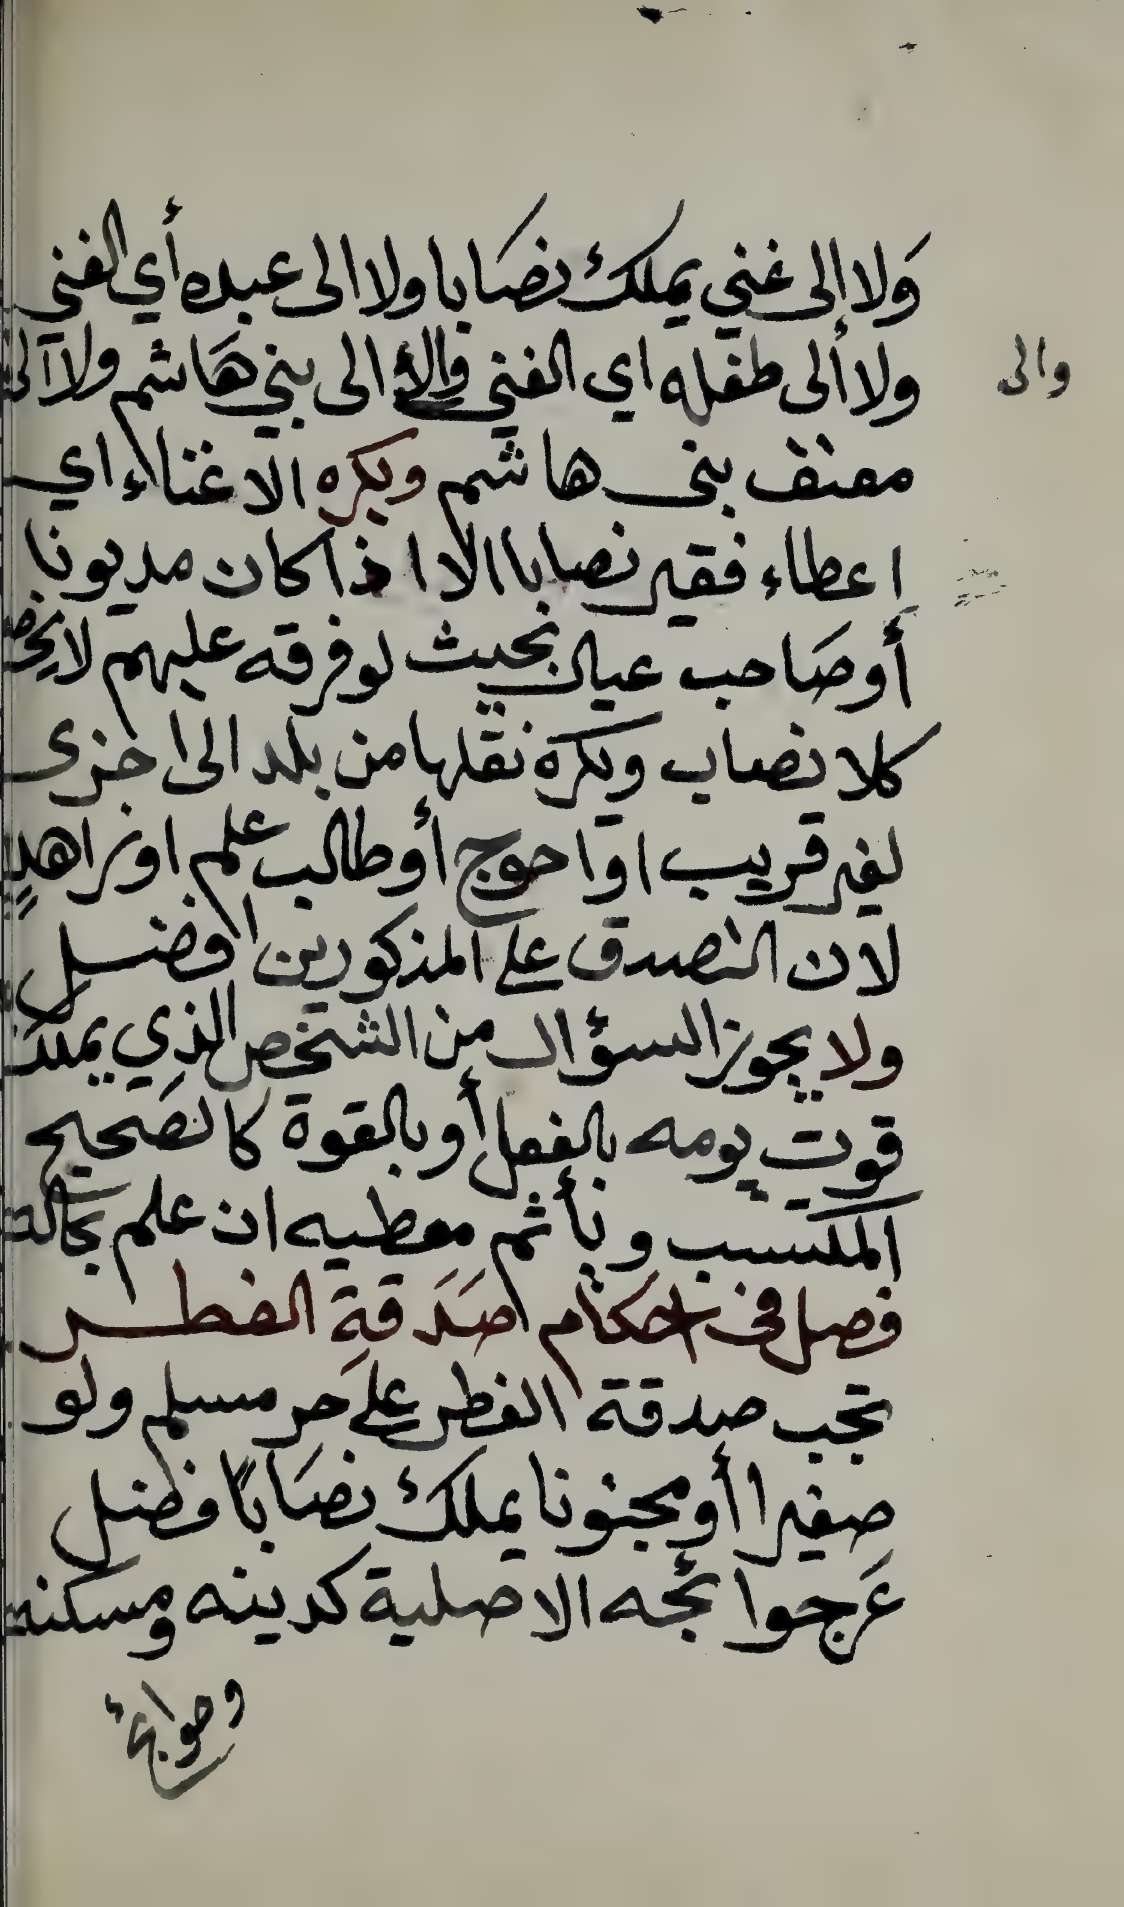 ولا الى غني يملك نصابا ولا الى عبده أي الغني
ولا ألى طفله اي الغني والى الى بني هاشم ولا الى
والى
معتق بنى هاشم ويكره الاغناء اي
اعطاء فقير نصابا الا اذا كان مديونا
أو صاحب عيال بحيث لو فرقه عليهم لا يخص
كلا نصاب ويكره نقلها من بلد الى اخرى
لغير قريب او احوج أو طالب علم او زاهد
لان التصدق على المذكورين افضل
ولا يجوز السؤال من الشخص الذي يملك
قوت يومه بالفعل أو بالقوة كالصحيح
المكتسب ويأثم معطيه ان علم بحاله
فصل في احكام صدقة الفطر
تجب صدقة الفطر على حر مسلم ولو
صغيرا أو مجنونا يملك نصابا فضل
عن حوائجه الاصلية كدينه ومسكنه
وحوائج